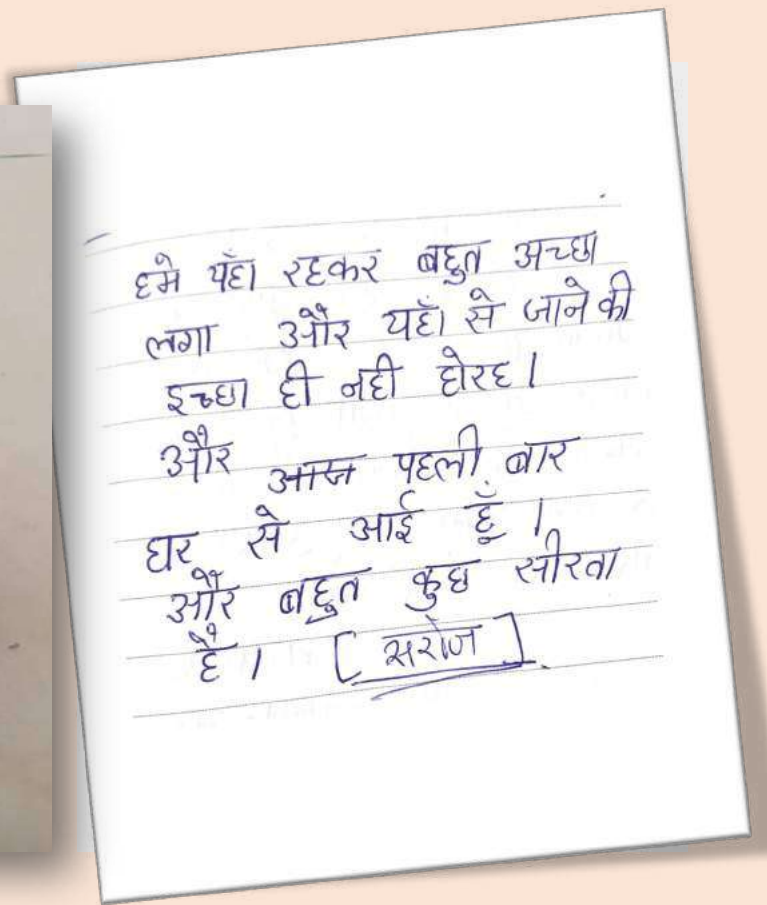 हमे यहाँ रहकर बहुत अच्छा
लगा और यहाँ से जाने की
इच्छा ही नही होरह।
और आज पहली बार
घर से आई हूँ।
और बहुत कुछ सीखा
है। [सरोज]